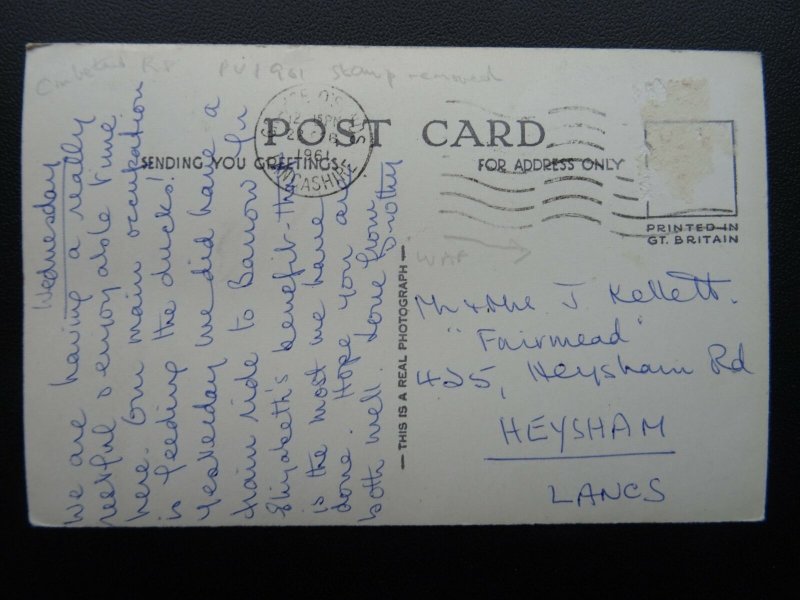 PU 1961 stamp removed
POST CARD
SENDING YOU GREETINGS
FOR ADDRESS ONLY
1961
LANCASHIRE
PRINTED IN
GT. BRITAIN
— THIS IS A REAL PHOTOGRAPH —
Wednesday
We are having a really
restful & enjoyable time
here. Our main occupation
is feeding the ducks!
Yesterday we did have a
train ride to Barrow for
Elizabeth's benefit - that
is the most we have
done. Hope you are
both well. Love from
Dorothy
Mr & Mrs J. Kellett.
"Fairmead"
425, Heysham Rd
HEYSHAM
LANCS